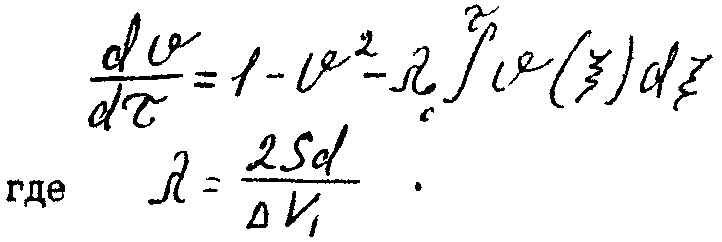 dv/dτ = 1 - v² - λ ∫₀^τ v(ξ)dξ
где λ = 2Sd/ΔV₁ .